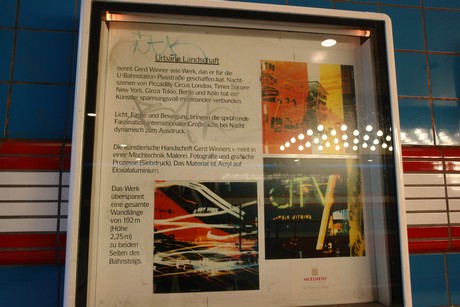 Urbane Landschaft
nennt Gerd Winner sein Werk, das er für die
U-Bahnstation Piusstraße geschaffen hat. Nacht-
szenen von Piccadilly Circus London, Times Square
New York, Ginza Tokio, Berlin und Köln hat der
Künstler spannungsvoll miteinander verbunden.
Licht, Farbe und Bewegung, bringen die sprühende
Faszination internationaler Großstädte bei Nacht
dynamisch zum Ausdruck.
Die künstlerische Handschrift Gerd Winners vereint in
einer Mischtechnik Malerei, Fotografie und grafische
Prozesse (Siebdruck). Das Material ist Acryl auf
Eloxalaluminium.
Das Werk
überspannt
eine gesamte
Wandlänge
von 192 m
(Höhe
2,25 m)
zu beiden
Seiten des
Bahnsteigs.